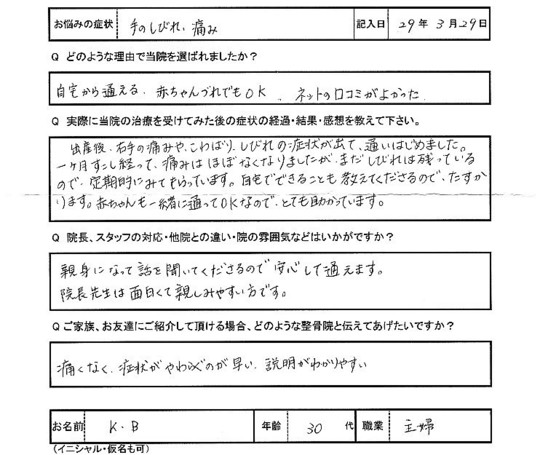 お悩みの症状 手のしびれ、痛み 記入日 29年3月29日
Q どのような理由で当院を選ばれましたか？
自宅から通える、赤ちゃんづれでもOK、ネットの口コミがよかった
Q 実際に当院の治療を受けてみた後の症状の経過・結果・感想を教えて下さい。
出産後、右手の痛みや、こわばり、しびれの症状が出て、通いはじめました。
一ヶ月すこし経って、痛みはほぼなくなりましたが、まだしびれは残っている
ので、定期的にみてもらっています。自宅でできることも教えてくださるので、たすか
ります。赤ちゃんも一緒に通ってOKなので、とても助かっています。
Q 院長、スタッフの対応・他院との違い・院の雰囲気などはいかがですか？
親身になって話を聞いてくださるので安心して通えます。
院長先生は面白くて親しみやすい方です。
Q ご家族、お友達にご紹介して頂ける場合、どのような整骨院と伝えてあげたいですか？
痛くなく、症状がやわらぐのが早い、説明がわかりやすい
お名前 K・B 年齢 30代 職業 主婦
(イニシャル・仮名も可)